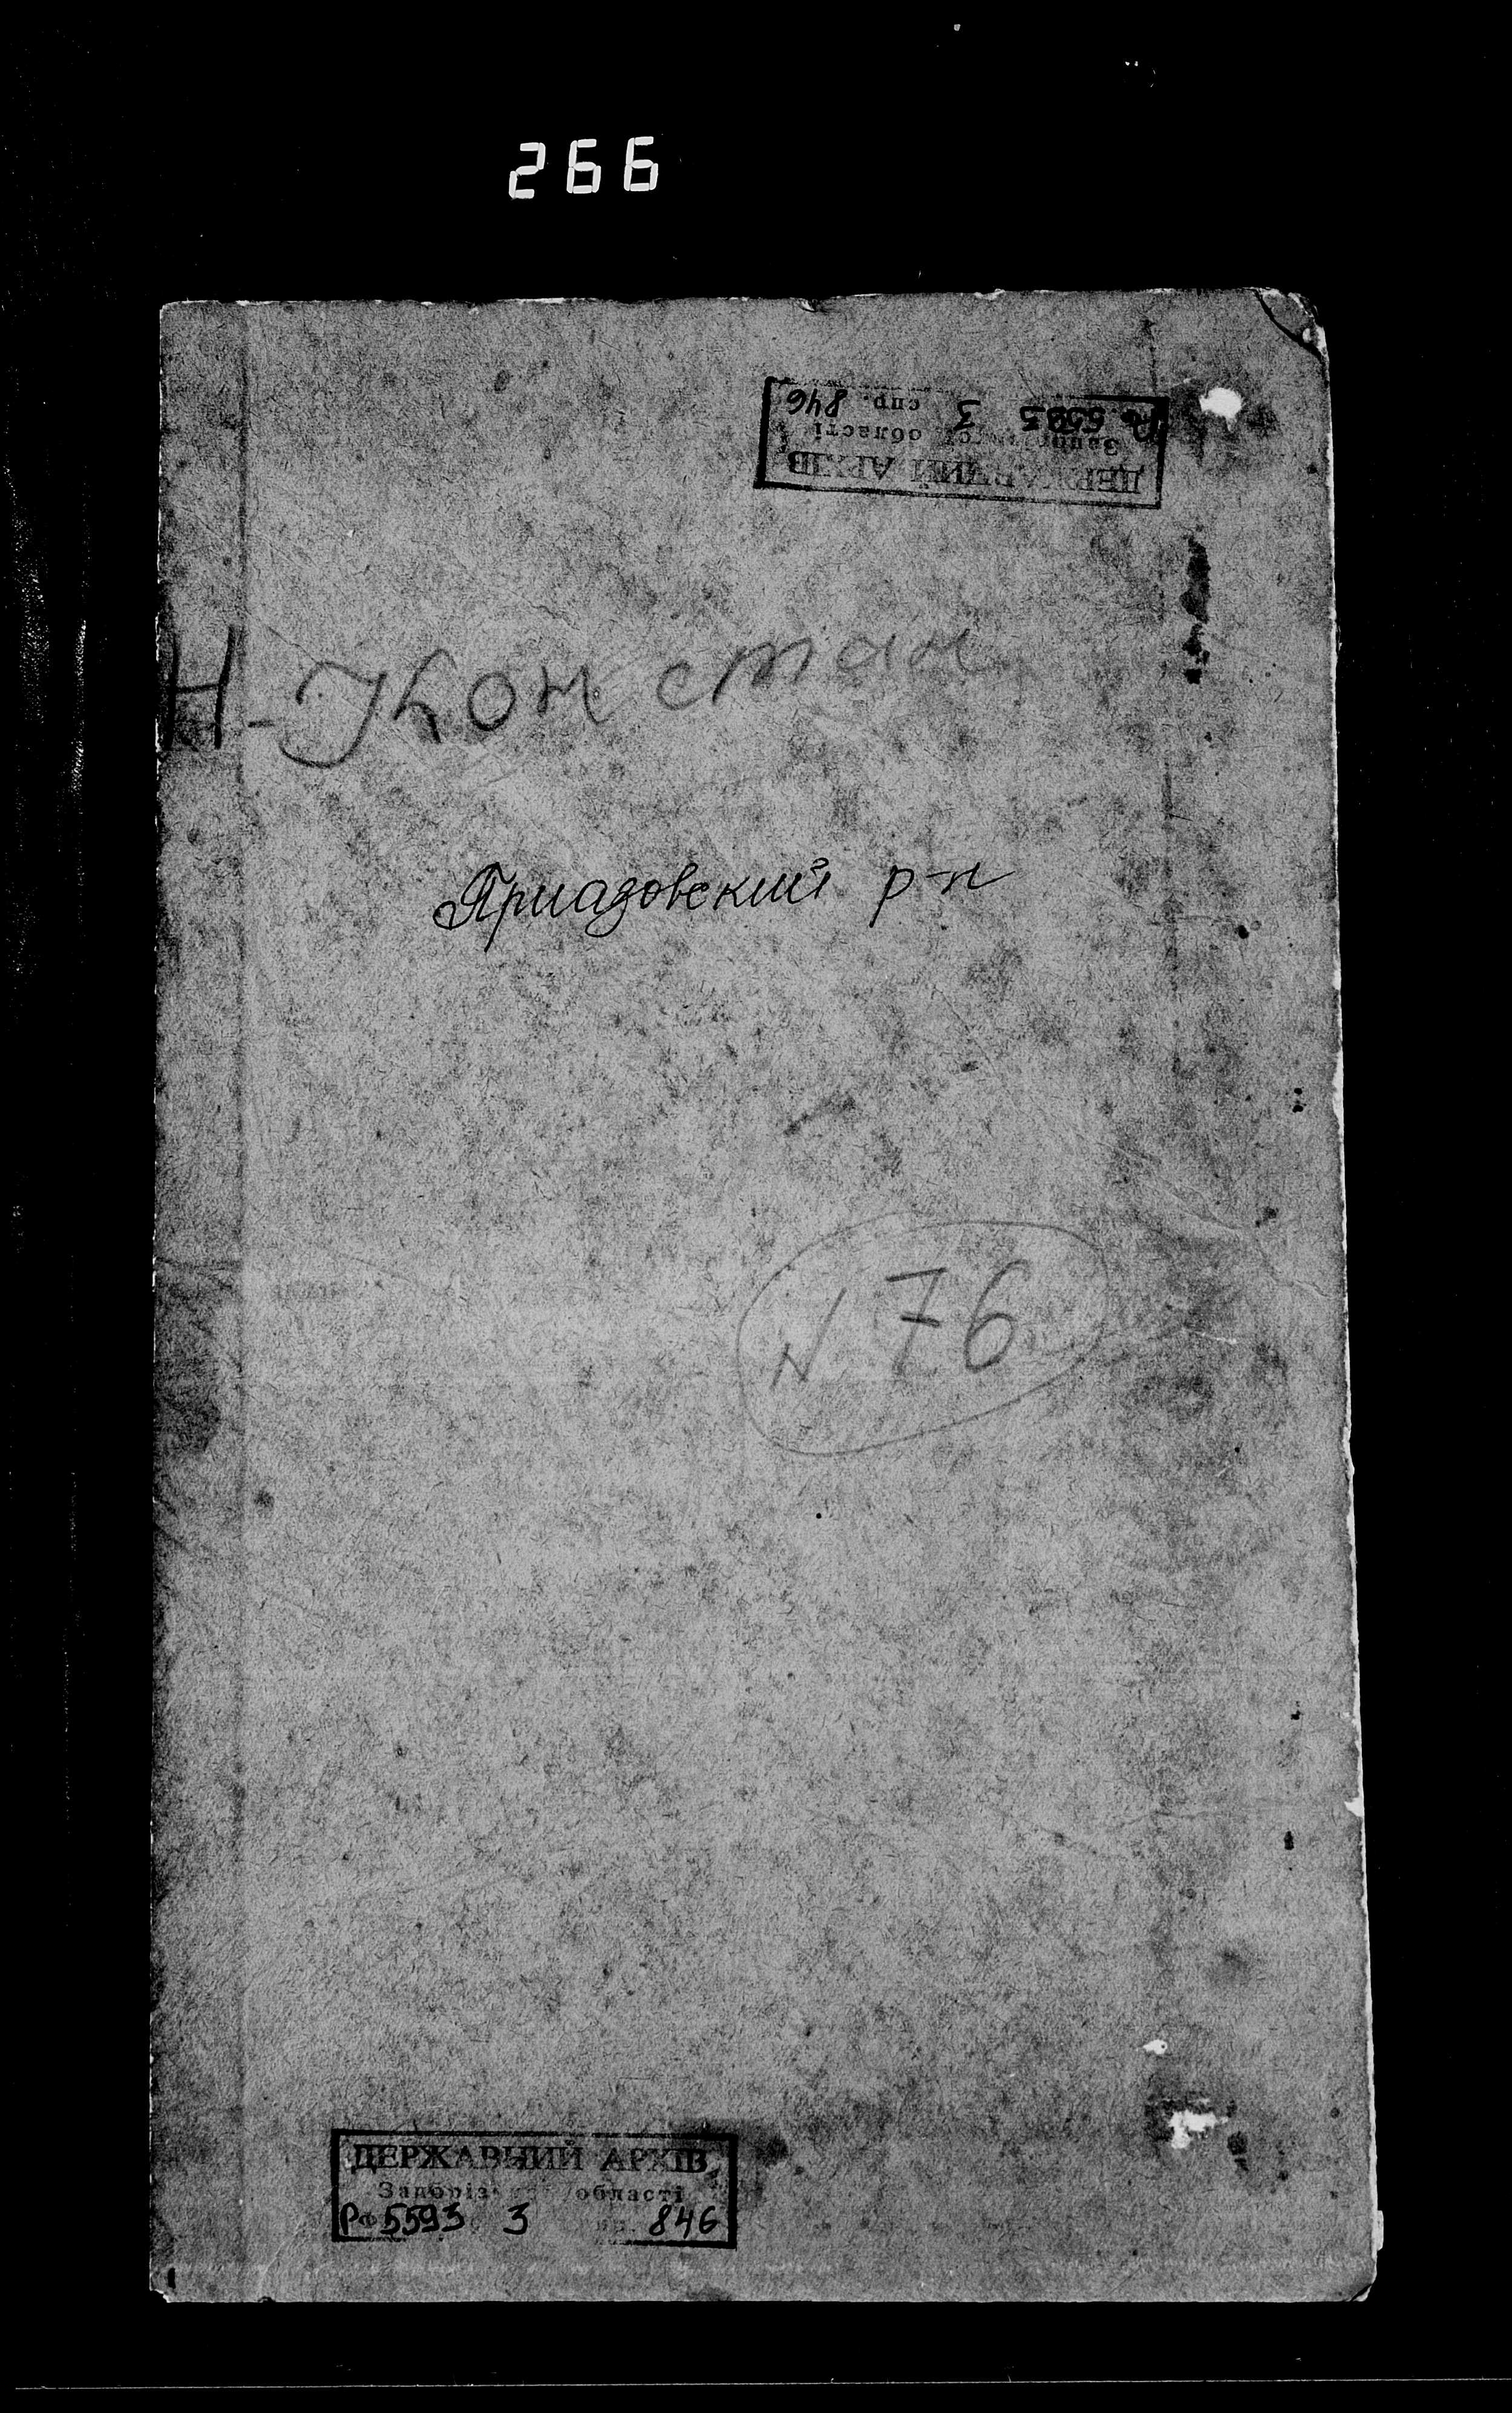 266
ДЕРЖАВНИЙ АРХІВ
Запорізької області
Рф 5593 3 спр. 846
Н-Констан
Приазовский р-н
N 76
ДЕРЖАВНИЙ АРХІВ
Запорізької області
Рф 5593 3 спр. 846